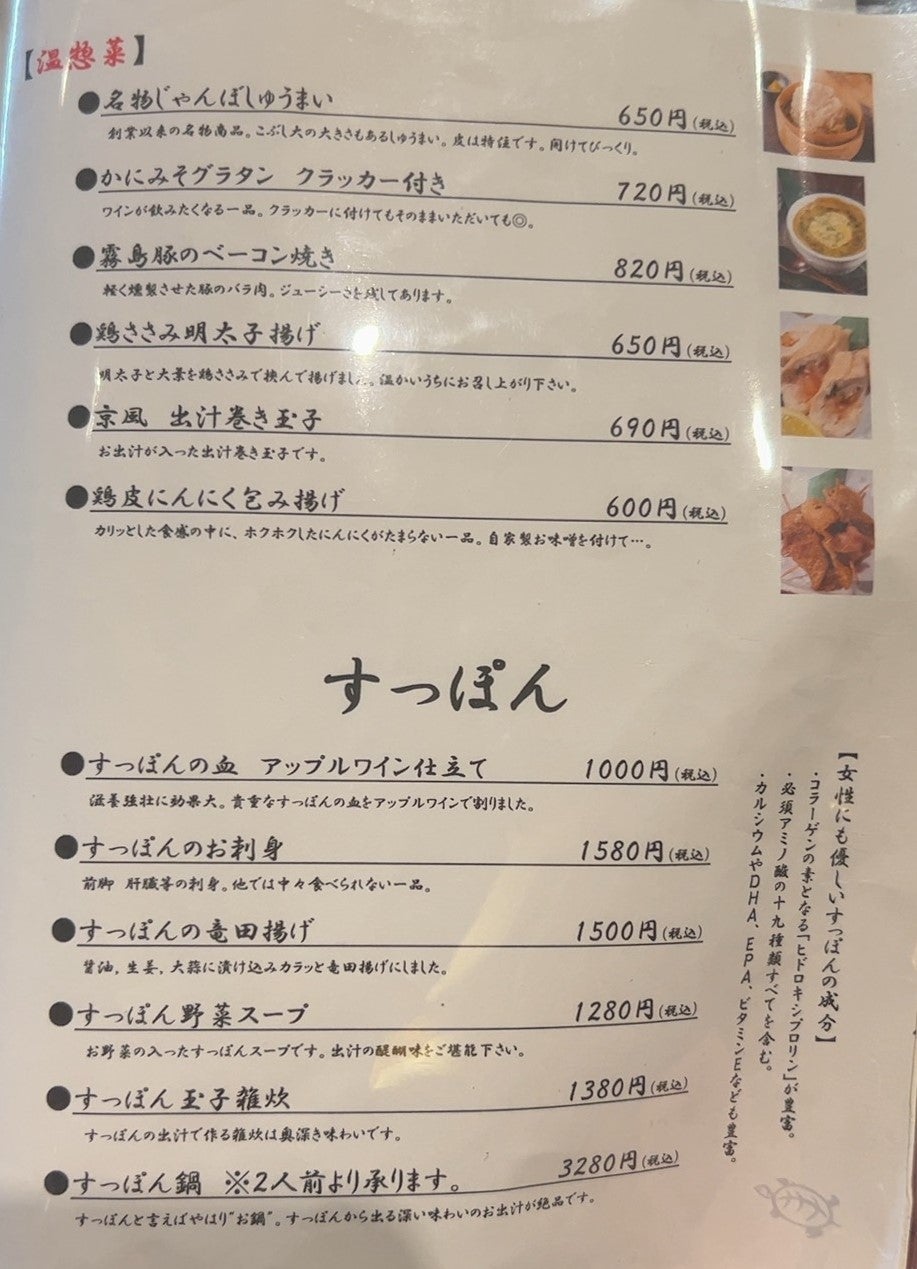 【温惣菜】
●名物じゃんぼしゅうまい 650円(税込)
創業以来の名物商品。こぶし大の大きさもあるしゅうまい。皮は特注です。開けてびっくり。
●かにみそグラタン クラッカー付き 720円(税込)
ワインが飲みたくなる一品。クラッカーに付けてもそのままいただいても◎。
●霧島豚のベーコン焼き 820円(税込)
軽く燻製させた豚のバラ肉。ジューシーさを残してあります。
●鶏ささみ明太子揚げ 650円(税込)
明太子と大葉を鶏ささみで挟んで揚げました。温かいうちにお召し上がり下さい。
●京風 出汁巻き玉子 690円(税込)
お出汁が入った出汁巻き玉子です。
●鶏皮にんにく包み揚げ 600円(税込)
カリッとした食感の中に、ホクホクしたにんにくがたまらない一品。自家製お味噌を付けて…。
すっぽん
●すっぽんの血 アップルワイン仕立て 1000円(税込)
滋養強壮に効果大。貴重なすっぽんの血をアップルワインで割りました。
●すっぽんのお刺身 1580円(税込)
前脚 肝臓等の刺身。他では中々食べられない一品。
●すっぽんの竜田揚げ 1500円(税込)
醤油,生姜,大蒜に漬け込みカラッと竜田揚げにしました。
●すっぽん野菜スープ 1280円(税込)
お野菜の入ったすっぽんスープです。出汁の醍醐味をご堪能下さい。
●すっぽん玉子雑炊 1380円(税込)
すっぽんの出汁で作る雑炊は奥深き味わいです。
●すっぽん鍋 ※2人前より承ります。 3280円(税込)
すっぽんと言えばやはり"お鍋"。すっぽんから出る深い味わいのお出汁が絶品です。
【女性にも優しいすっぽんの成分】
・コラーゲンの素となる「ヒドロキシプロリン」が豊富。
・必須アミノ酸の十九種類すべてを含む。
・カルシウムやDHA、EPA、ビタミンEなども豊富。